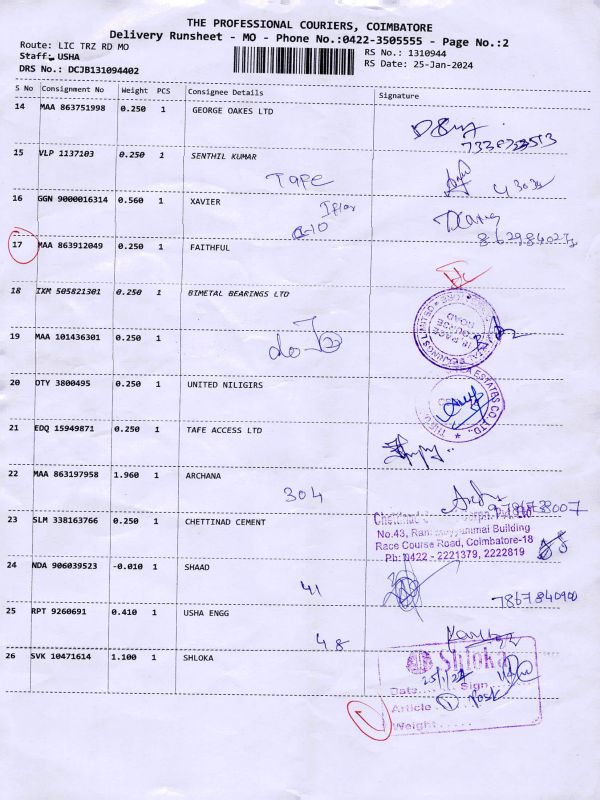 THE PROFESSIONAL COURIERS, COIMBATORE
Delivery Runsheet - MO - Phone No.:0422-3505555 - Page No.:2
Route: LIC TRZ RD MO
RS No.: 1310944
Staff: USHA
RS Date: 25-Jan-2024
DRS No.: DCJB131094402
S No Consignment No Weight PCS Consignee Details Signature
14 MAA 863751998 0.250 1 GEORGE OAKES LTD
15 VLP 1137103 0.250 1 SENTHIL KUMAR
Tape
16 GGN 9000016314 0.560 1 XAVIER
17 MAA 863912049 0.250 1 FAITHFUL
18 IXM 505821301 0.250 1 BIMETAL BEARINGS LTD
19 MAA 101436301 0.250 1
do
20 OTY 3800495 0.250 1 UNITED NILIGIRS
21 EDQ 15949871 0.250 1 TAFE ACCESS LTD
22 MAA 863197958 1.960 1 ARCHANA
304
23 SLM 338163766 0.250 1 CHETTINAD CEMENT
Chettinad
No.43, Building
Race Course Road, Coimbatore-18
Ph: 0422 - 2221379, 2222819
24 NDA 906039523 -0.010 1 SHAAD
41
7867840900
25 RPT 9260691 0.410 1 USHA ENGG
48
26 SVK 10471614 1.100 1 SHLOKA
Shloka
25/1/24
Date..... Sign
Article
Weight.....